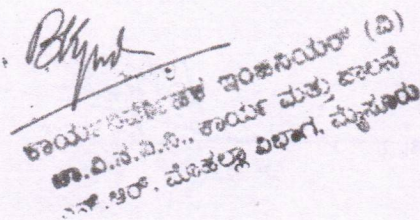 ಕಾರ್ಯನಿರ್ವಾಹಕ ಇಂಜಿನಿಯರ್ (ವಿ)
ಚಾ.ವಿ.ಸ.ನಿ.ನಿ., ಕಾರ್ಯ ಮತ್ತು ಪಾಲನೆ
ಎನ್.ಆರ್. ಮೊಹಲ್ಲಾ ವಿಭಾಗ, ಮೈಸೂರು